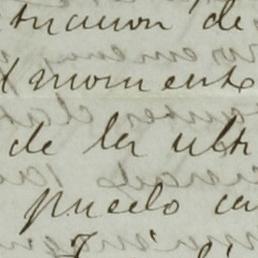 tuacion de
l momento
de la ulti
puedo ca